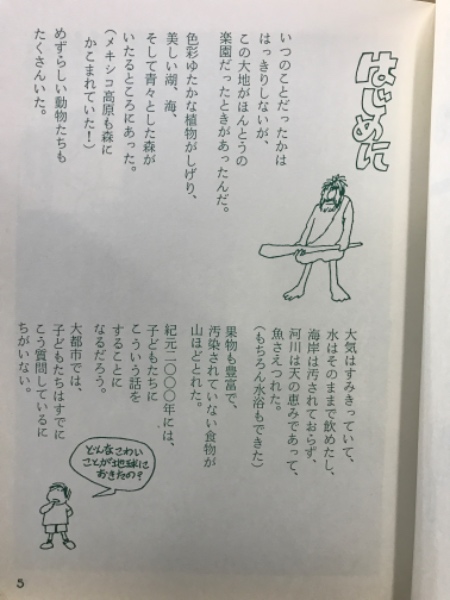 はじめに
いつのことだったかは
はっきりしないが、
この大地がほんとうの
楽園だったときがあったんだ。
色彩ゆたかな植物がしげり、
美しい湖、海、
そして青々とした森が
いたるところにあった。
（メキシコ高原も森に
かこまれていた！）
めずらしい動物たちも
たくさんいた。
大気はすみきっていて、
水はそのままで飲めたし、
海岸は汚されておらず、
河川は天の恵みであって、
魚さえつれた。
（もちろん水浴もできた）
果物も豊富で、
汚染されていない食物が
山ほどとれた。
紀元二〇〇〇年には、
子どもたちに
こういう話を
することに
なるだろう。
大都市では、
子どもたちはすでに
こう質問しているに
ちがいない。
どんなこわい
ことが地球に
おきたの？
5